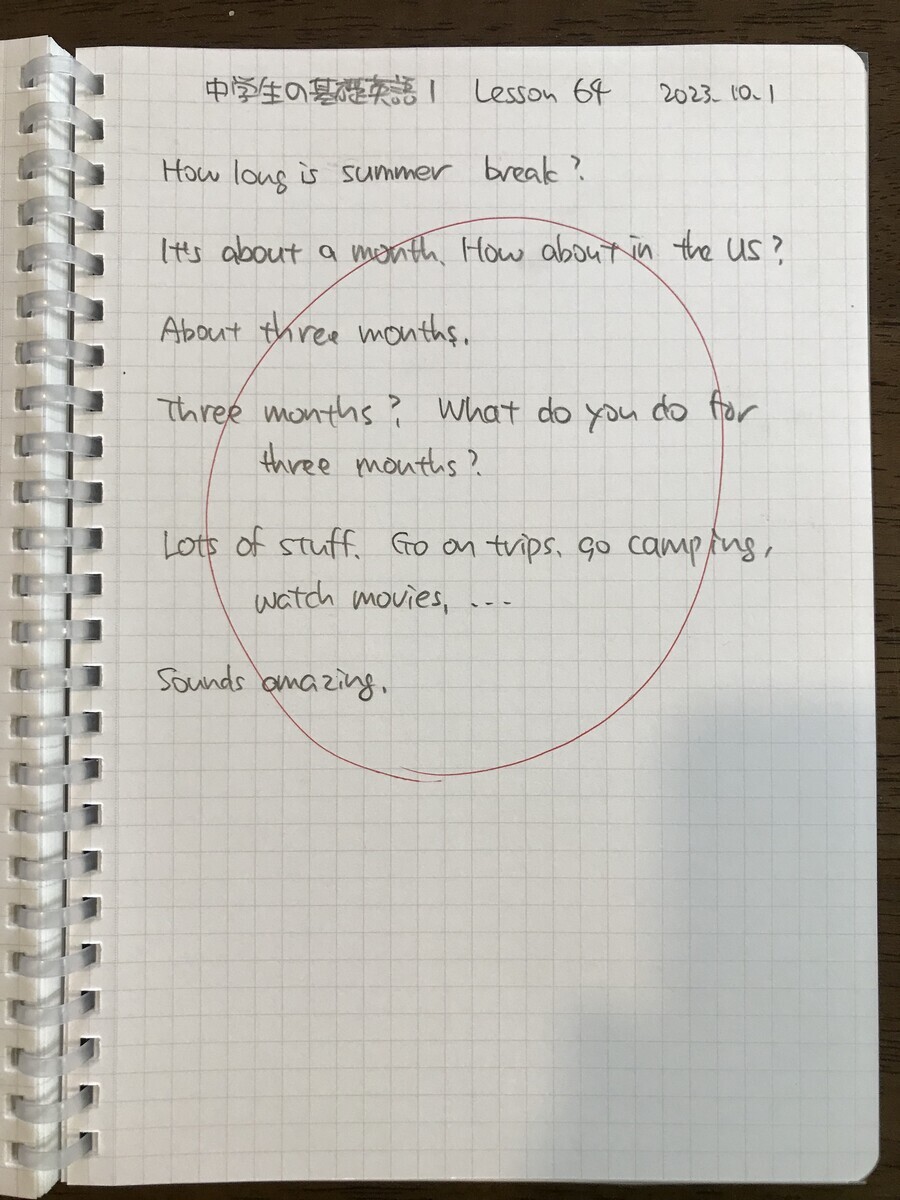 中学生の基礎英語1 Lesson 64 2023.10.1
How long is summer break?
It's about a month. How about in the US?
About three months.
Three months? What do you do for
three months?
Lots of stuff. Go on trips, go camping,
watch movies, ...
Sounds amazing.